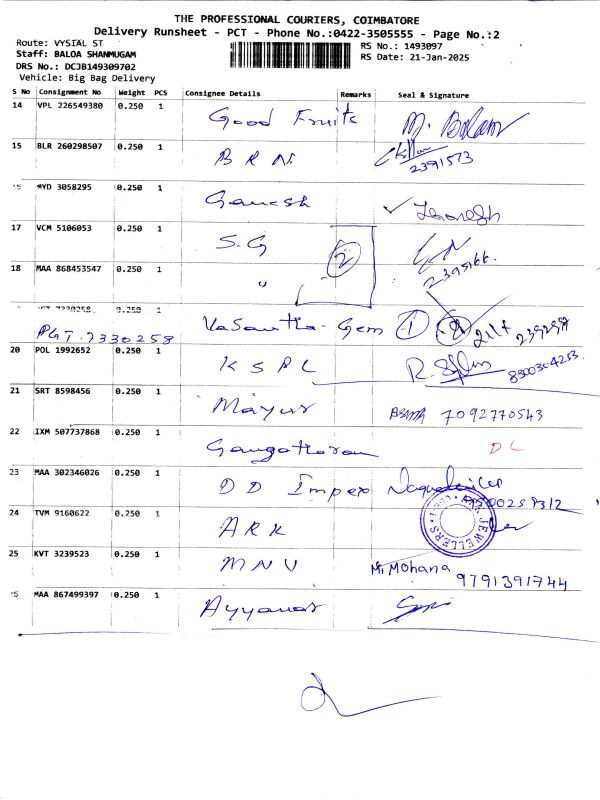 THE PROFESSIONAL COURIERS, COIMBATORE
Delivery Runsheet - PCT - Phone No.:0422-3505555 - Page No.:2
Route: VYSIAL ST
RS No.: 1493097
Staff: BALOA SHANMUGAM
RS Date: 21-Jan-2025
DRS No.: DCJB149309702
Vehicle: Big Bag Delivery
S No Consignment No Weight PCS Consignee Details Remarks Seal & Signature
14 VPL 226549380 0.250 1 Good Fruits M.
15 BLR 260298507 0.250 1 B R N 2391573
HYD 3058295 0.250 1 Ganesh
17 VCM 5106053 0.250 1 S.G 2 2395166.
18 MAA 868453547 0.250 1 "
7330258 0.250 1 Vasantha Gem 1
PGT.7330258
20 POL 1992652 0.250 1 K S P L R. 8300304253.
21 SRT 8598456 0.250 1 Mayur 7092770543
22 IXM 507737868 0.250 1 Gangatharan D L
23 MAA 302346026 0.250 1 D D Impex
24 TVM 9160622 0.250 1 A R K JEWELLERS
25 KVT 3239523 0.250 1 M N V Mohana
9791391744
MAA 867499397 0.250 1 Ayyanar